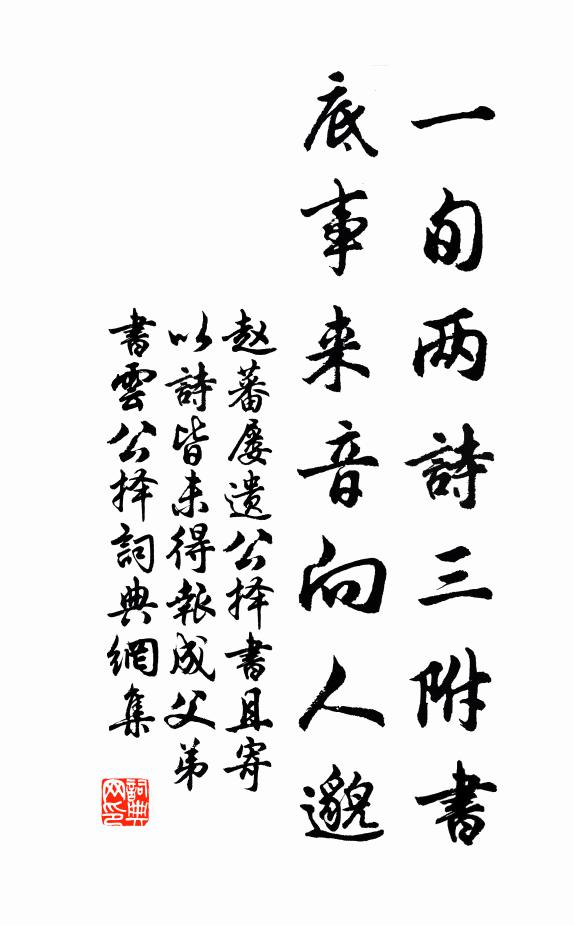 一旬两詩三附書
底事来音向人邈
赵蕃屡遗公择書且寄
以詩皆未得報成父弟
書雲公择詞典網集
詞典网印